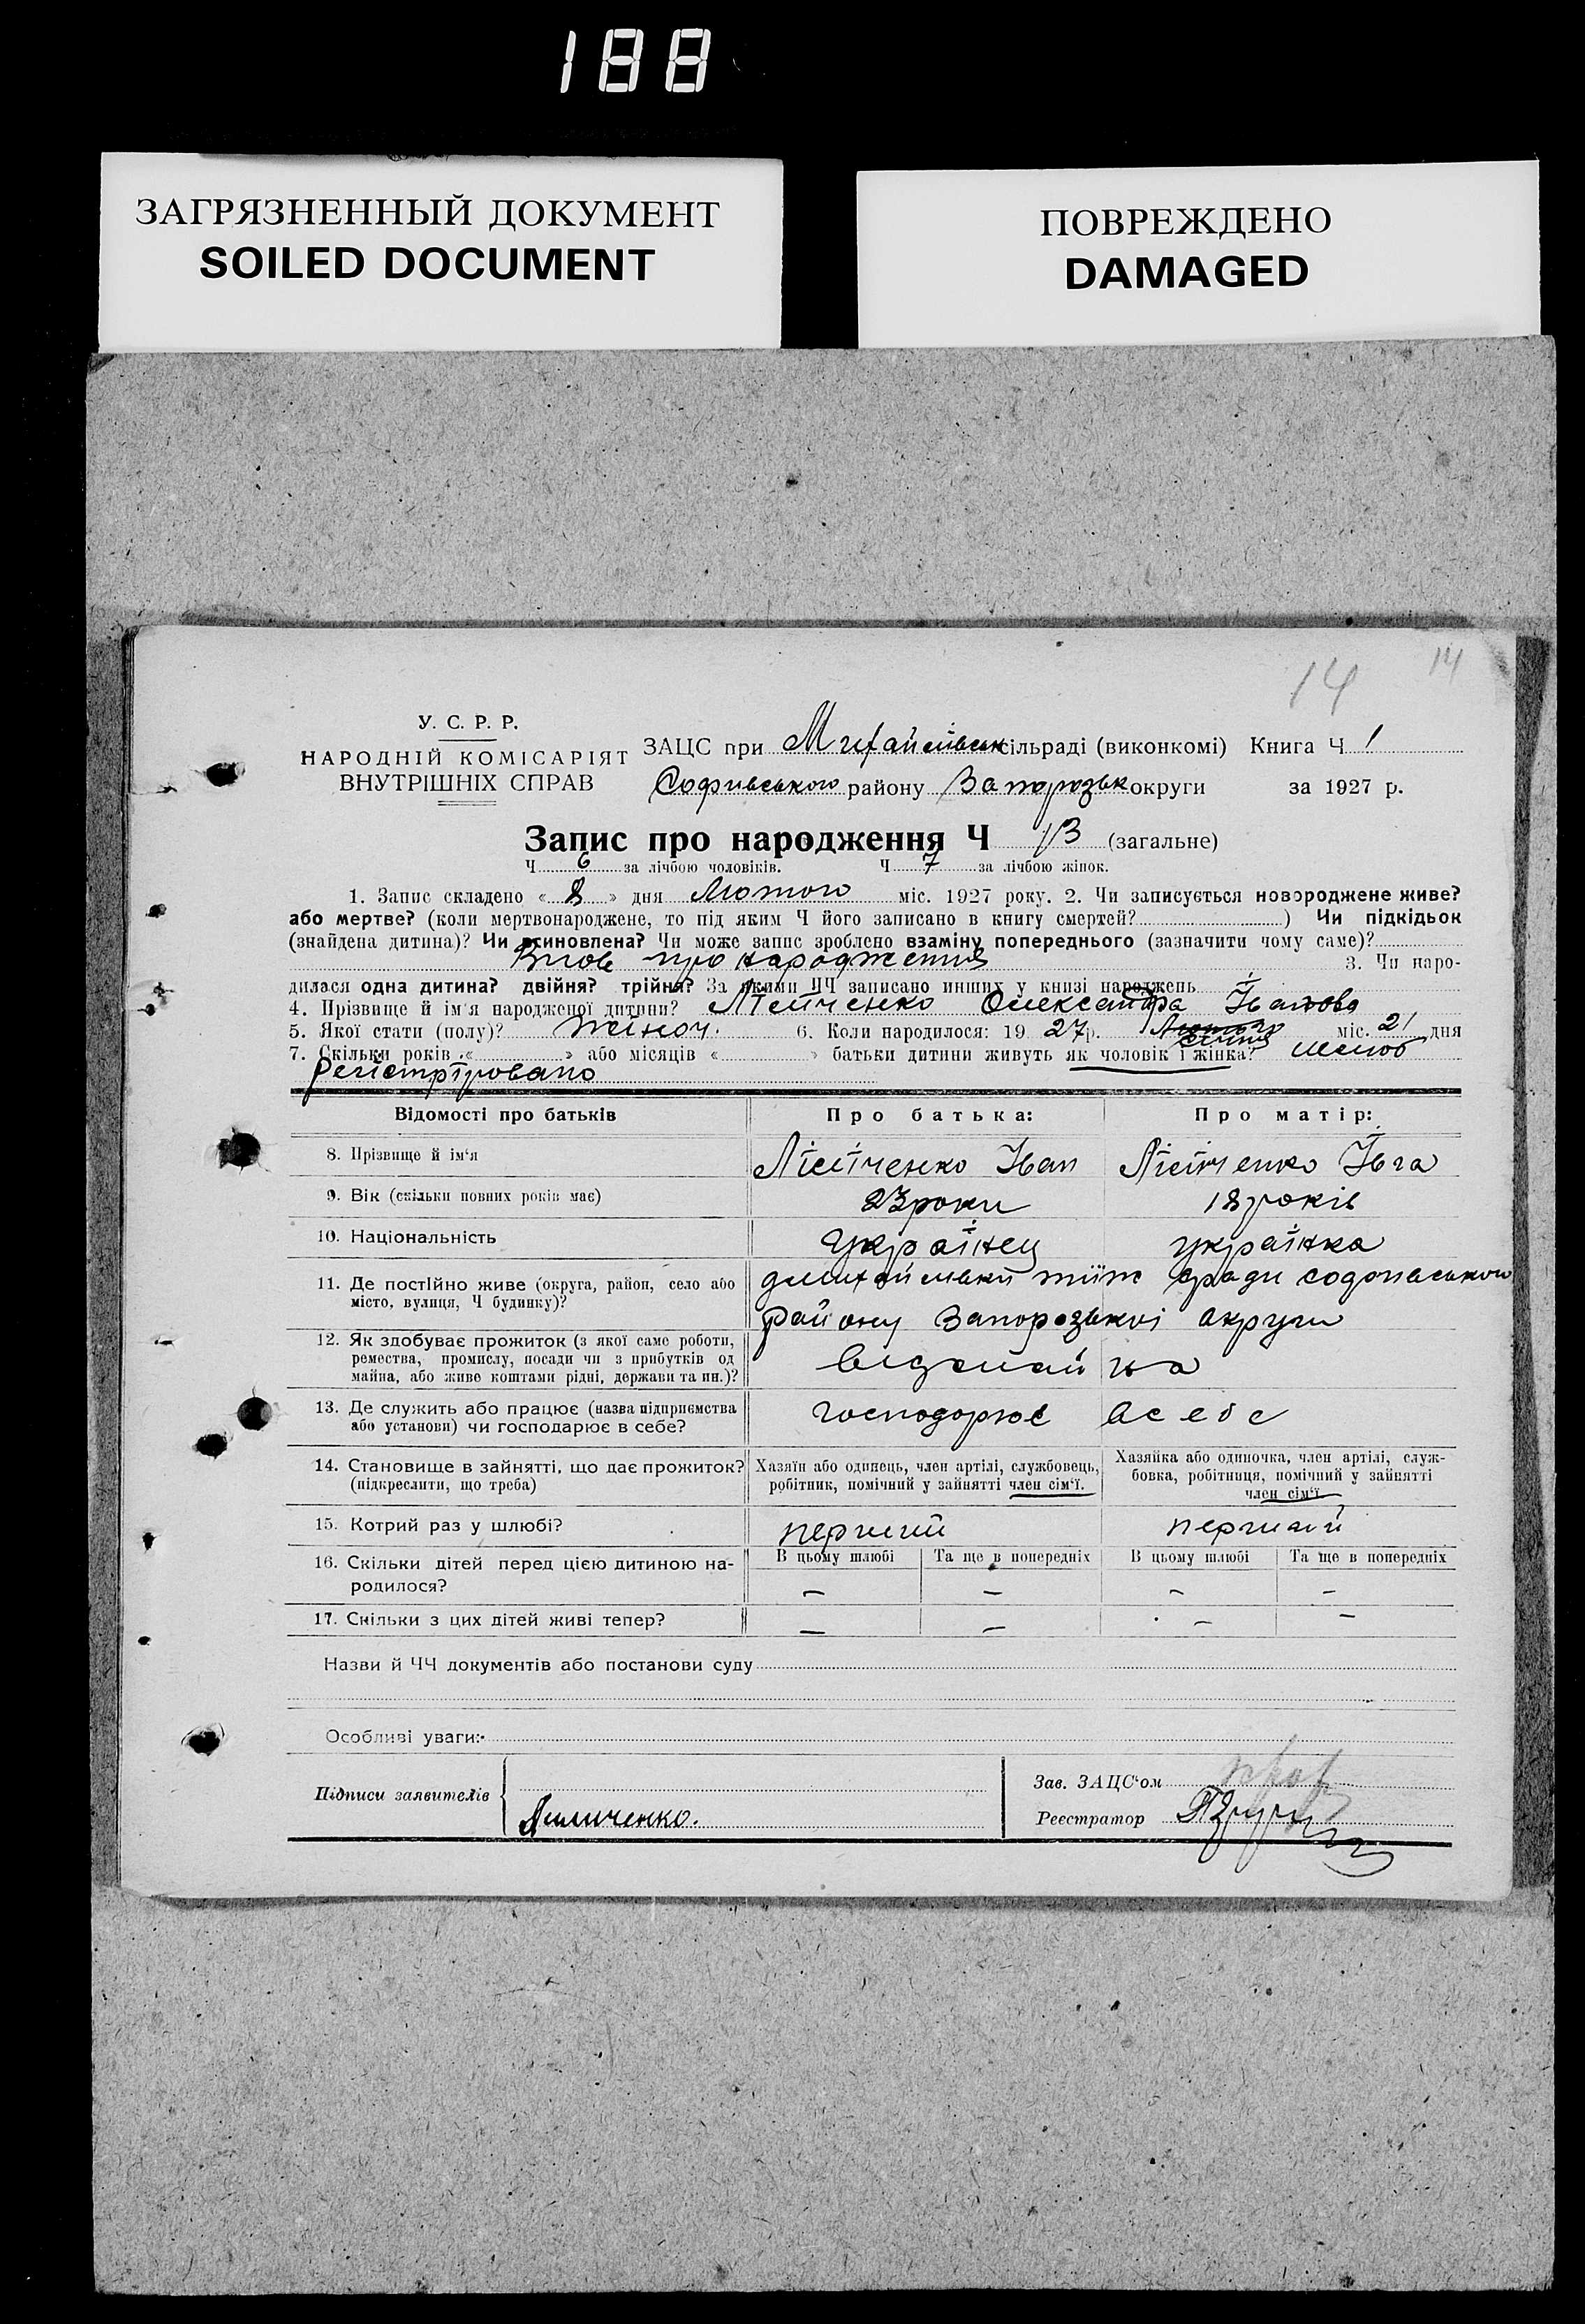 188
ЗАГРЯЗНЕННЫЙ ДОКУМЕНТ
SOILED DOCUMENT
ПОВРЕЖДЕНО
DAMAGED
14 14
У. С. Р. Р.
НАРОДНІЙ КОМІСАРІЯТ
ВНУТРІШНІХ СПРАВ
ЗАЦС при Михайлівськ сільраді (виконкомі) Книга Ч 1
Софиевського району Запорозьк округи за 1927 р.
Запис про народження Ч 13 (загальне)
Ч 6 за лічбою чоловіків. Ч 7 за лічбою жінок.
1. Запис складено « 8 » дня Лютого міс. 1927 року. 2. Чи записується новороджене живе?
або мертве? (коли мертвонароджене, то під яким Ч його записано в книгу смертей? ) Чи підкідьок
(знайдена дитина)? Чи всиновлена? Чи може запис зроблено взаміну попереднього (зазначити чому саме)?
Внове про народження 3. Чи наро-
дилася одна дитина? двійня? трійня? За якими ЧЧ записано инших у книзі народжень
4. Прізвище й ім'я народженої дитини? Олександра Іванова
5. Якої стати (полу)? жіноч. 6. Коли народилося: 19 27 р. Лютого січня міс. 21 дня
7. Скільки років « » або місяців « » батьки дитини живуть як чоловік і жінка? шлюб
регістріровано
Відомості про батьків Про батька: Про матір:
8. Прізвище й ім'я Іван Ївга
9. Вік (скільки повних років має) 23 роки 18 років
10. Національність українец українка
11. Де постійно живе (округа, район, село або
місто, вулиця, Ч будинку)?
району Запорозькоі округи
12. Як здобуває прожиток (з якої саме роботи,
ремества, промислу, посади чи з прибутків од
майна, або живе коштами рідні, держави та ин.)?
13. Де служить або працює (назва підприємства
або установи) чи господарює в себе?
господорює в себе
14. Становище в зайнятті, що дає прожиток?
(підкреслити, що треба)
Хазяїн або одинець, член артілі, службовець,
робітник, помічний у зайнятті член сім'ї.
Хазяйка або одиночка, член артілі, служ-
бовка, робітниця, помічний у зайнятті
член сім'ї
15. Котрий раз у шлюбі? перший перший
16. Скільки дітей перед цією дитиною на-
родилося?
В цьому шлюбі Та ще в попередніх В цьому шлюбі Та ще в попередніх
– – – –
17. Скільки з цих дітей живі тепер? – – – –
Назви й ЧЧ документів або постанови суду
Особливі уваги:
Підписи заявителів
Зав. ЗАЦС'ом
Реєстратор